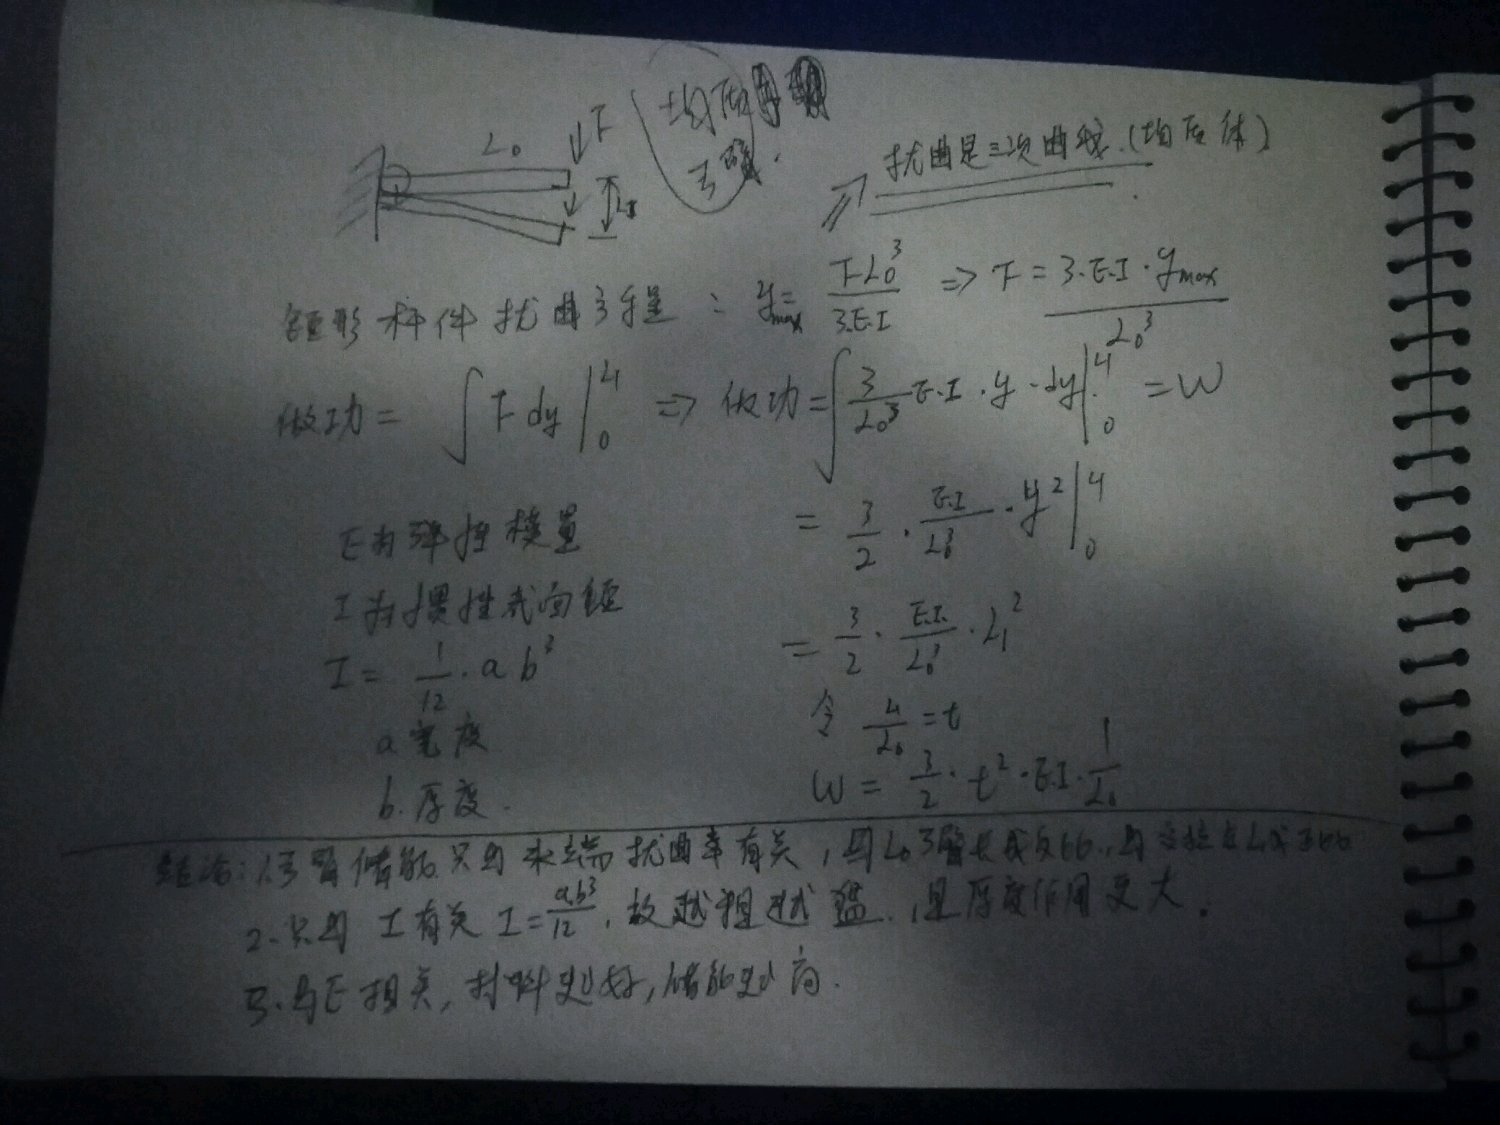 L₀ F
均质
弓臂.
L₁
⇒ 扰曲是三次曲线.(均质体)
矩形杆件扰曲方程: y_max = F·L₀³ / 3·E·I ⇒ F = 3·E·I·y_max / L₀³
做功 = ∫ F dy |₀^L₁ ⇒ 做功 = ∫ 3/L₀³ E·I·y·dy |₀^L₁ = W
= 3/2 · E·I/L₀³ · y² |₀^L₁
E为弹性模量
I为惯性截面矩
= 3/2 · E·I./L₀³ · L₁²
I = 1/12 · a b³
令 L₁/L₀ = t
a 宽度
W = 3/2 · t² · E·I · 1/L₀
b. 厚度.
结论: 1.弓臂储能只与末端扰曲率有关, 与L₀弓臂长成反比, 与
2. 只与 I有关 I = ab³/12, 故越粗越猛, 且厚度作用更大.
3. 与E相关, 材料越好, 储能越高.